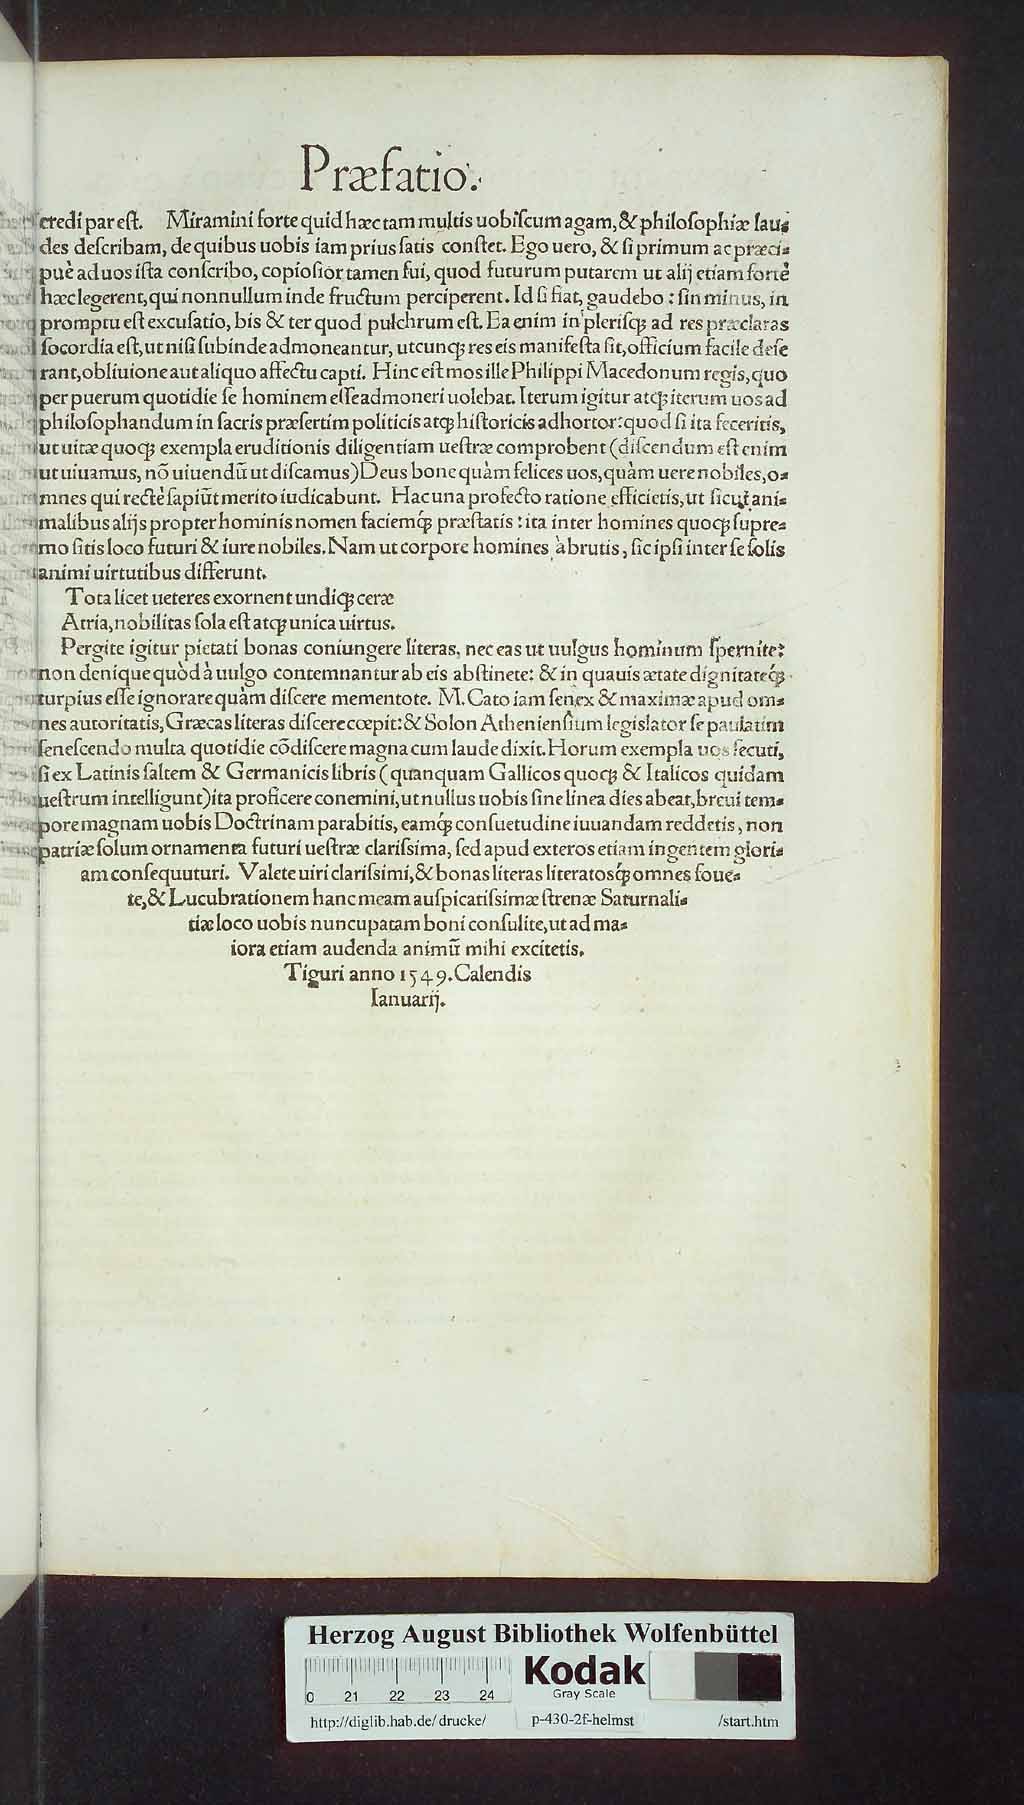 Præfatio.
credi par eſt. Miramini forte quid hæc tam multis uobiſcum agam, & philoſophiæ lau⸗
des deſcribam, de quibus uobis iam prius ſatis conſtet. Ego uero, & ſi primum ac præci⸗
puè ad uos iſta conſcribo, copioſior tamen fui, quod futurum putarem ut alij etiam fortè
hæc legerent, qui nonnullum inde fructum perciperent. Id ſi fiat, gaudebo: ſin minus, in
promptu eſt excuſatio, bis & ter quod pulchrum eſt. Ea enim in pleriſq; ad res præclaras
ſocordia eſt, ut niſi ſubinde admoneantur, utcunq; res eis manifeſta ſit, officium facile deſe
rant, obliuione aut aliquo affectu capti. Hinc eſt mos ille Philippi Macedonum regis, quo
per puerum quotidie ſe hominem eſſe admoneri uolebat. Iterum igitur atq; iterum uos ad
philoſophandum in ſacris præſertim politicis atq; hiſtoricis adhortor: quod ſi ita feceritis,
ut uitæ quoq; exempla eruditionis diligentiam ueſtræ comprobent (diſcendum eſt enim
ut uiuamus, nō uiuendū ut diſcamus) Deus bone quàm felices uos, quàm uere nobiles, o⸗
mnes qui rectè ſapiūt merito iudicabunt. Hac una profecto ratione efficietis, ut ſicut ani⸗
malibus alijs propter hominis nomen faciemq́; præſtatis: ita inter homines quoq; ſupre⸗
mo ſitis loco futuri & iure nobiles. Nam ut corpore homines à brutis, ſic ipſi inter ſe ſolis
animi uirtutibus differunt.
Tota licet ueteres exornent undiq; ceræ
Atria, nobilitas ſola eſt atq; unica uirtus.
Pergite igitur pietati bonas coniungere literas, nec eas ut uulgus hominum ſpernite:
non denique quòd à uulgo contemnantur ab eis abſtinete: & in quauis ætate dignitateq́;
turpius eſſe ignorare quàm diſcere mementote. M. Cato iam ſenex & maximæ apud om⸗
nes autoritatis, Græcas literas diſcere cœpit: & Solon Athenienſium legislator ſe paulatim
ſeneſcendo multa quotidie cōdiſcere magna cum laude dixit. Horum exempla uos ſecuti,
ſi ex Latinis ſaltem & Germanicis libris (quanquam Gallicos quoq; & Italicos quidam
ueſtrum intelligunt) ita proficere conemini, ut nullus uobis ſine linea dies abeat, breui tem⸗
pore magnam uobis Doctrinam parabitis, eamq́; conſuetudine iuuandam reddetis, non
patriæ ſolum ornamenta futuri ueſtræ clariſſima, ſed apud exteros etiam ingentem glori⸗
am conſequuturi. Valete uiri clariſſimi, & bonas literas literatosq́; omnes foue⸗
te, & Lucubrationem hanc meam auſpicatiſſimæ ſtrenæ Saturnali⸗
tiæ loco uobis nuncupatam boni conſulite, ut ad ma⸗
iora etiam audenda animū mihi excitetis.
Tiguri anno 1549. Calendis
Ianuarij.
Herzog August Bibliothek Wolfenbüttel
0 21 22 23 24
Kodak
Gray Scale
http://diglib.hab.de/drucke/ p-430-2f-helmst /start.htm